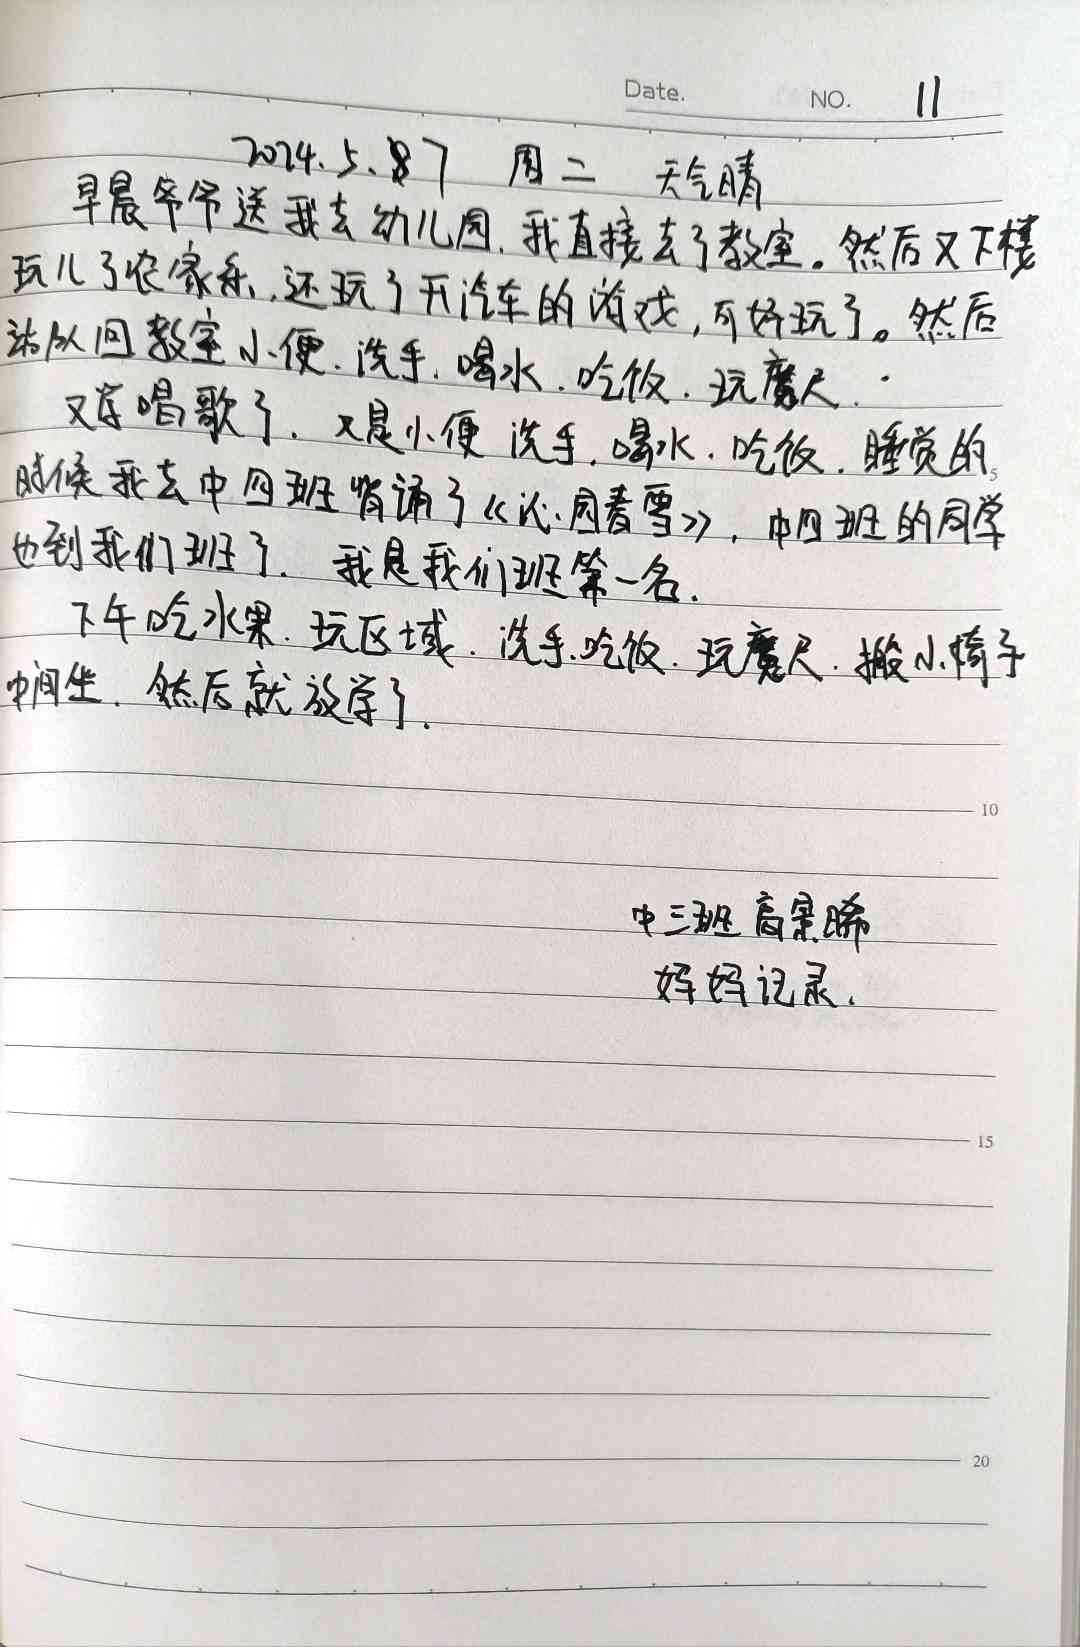 Date.
NO. 11
2024.5.7 周二 天气晴
早晨爷爷送我去幼儿园,我直接去了教室。然后又下楼
玩儿了农家乐,还玩了开汽车的游戏,可好玩了。然后
站队回教室小便.洗手.喝水.吃饭.玩魔尺.
又学唱歌了.又是小便 洗手.喝水.吃饭.睡觉的
5
时候我去中四班背诵了《沁园春雪》,中四班的同学
也到我们班了.我是我们班第一名.
下午吃水果.玩区域.洗手.吃饭.玩魔尺.搬小椅子
中间坐.然后就放学了.
10
中三班 高景晞
妈妈记录.
15
20